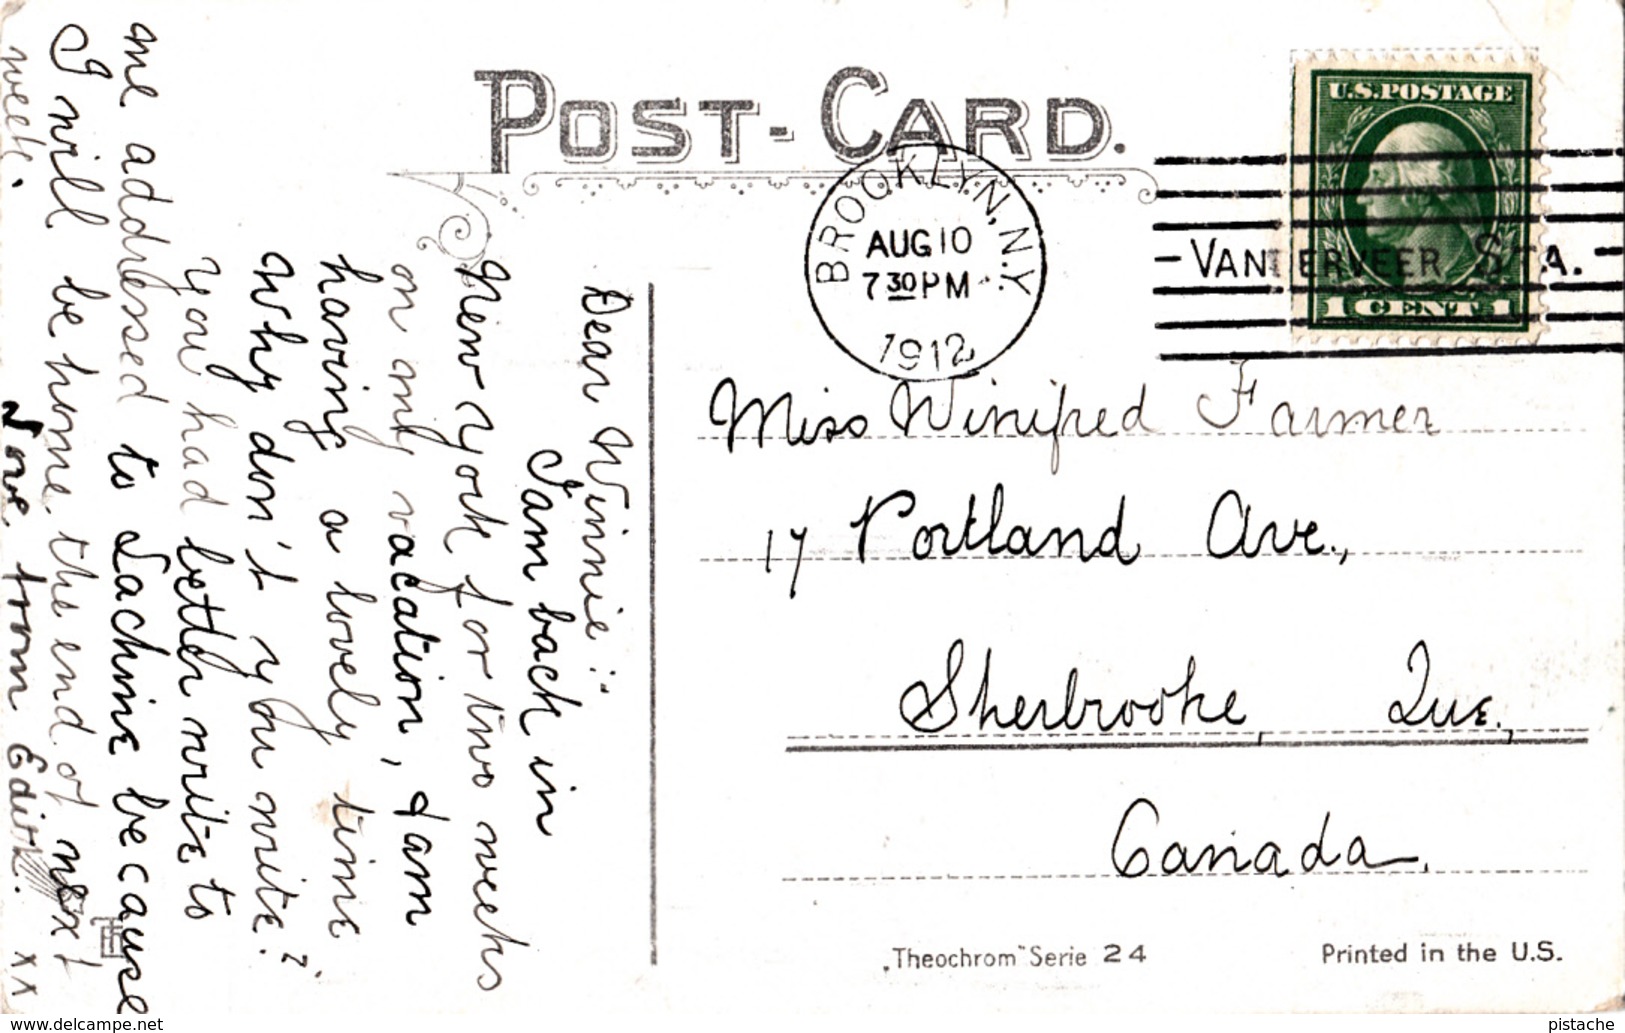 POST-CARD.
BROOKLYN, N.Y.
AUG 10
7 30 PM
1912
U.S. POSTAGE
- VANDERVEER STA. -
1 CENT 1
Miss Winifred Farmer
17 Portland Ave.,
Sherbrooke, Que.,
Canada.
"Theochrom" Serie 24
Printed in the U.S.
Dear Winnie:-
I am back in
New York for two weeks
on my vacation, & am
having a lovely time
Why don't you write?
You had better write to
me addressed to Lachine because
I will be home the end of next
week.
Love from Edith. xx
delcampe.net
pistache